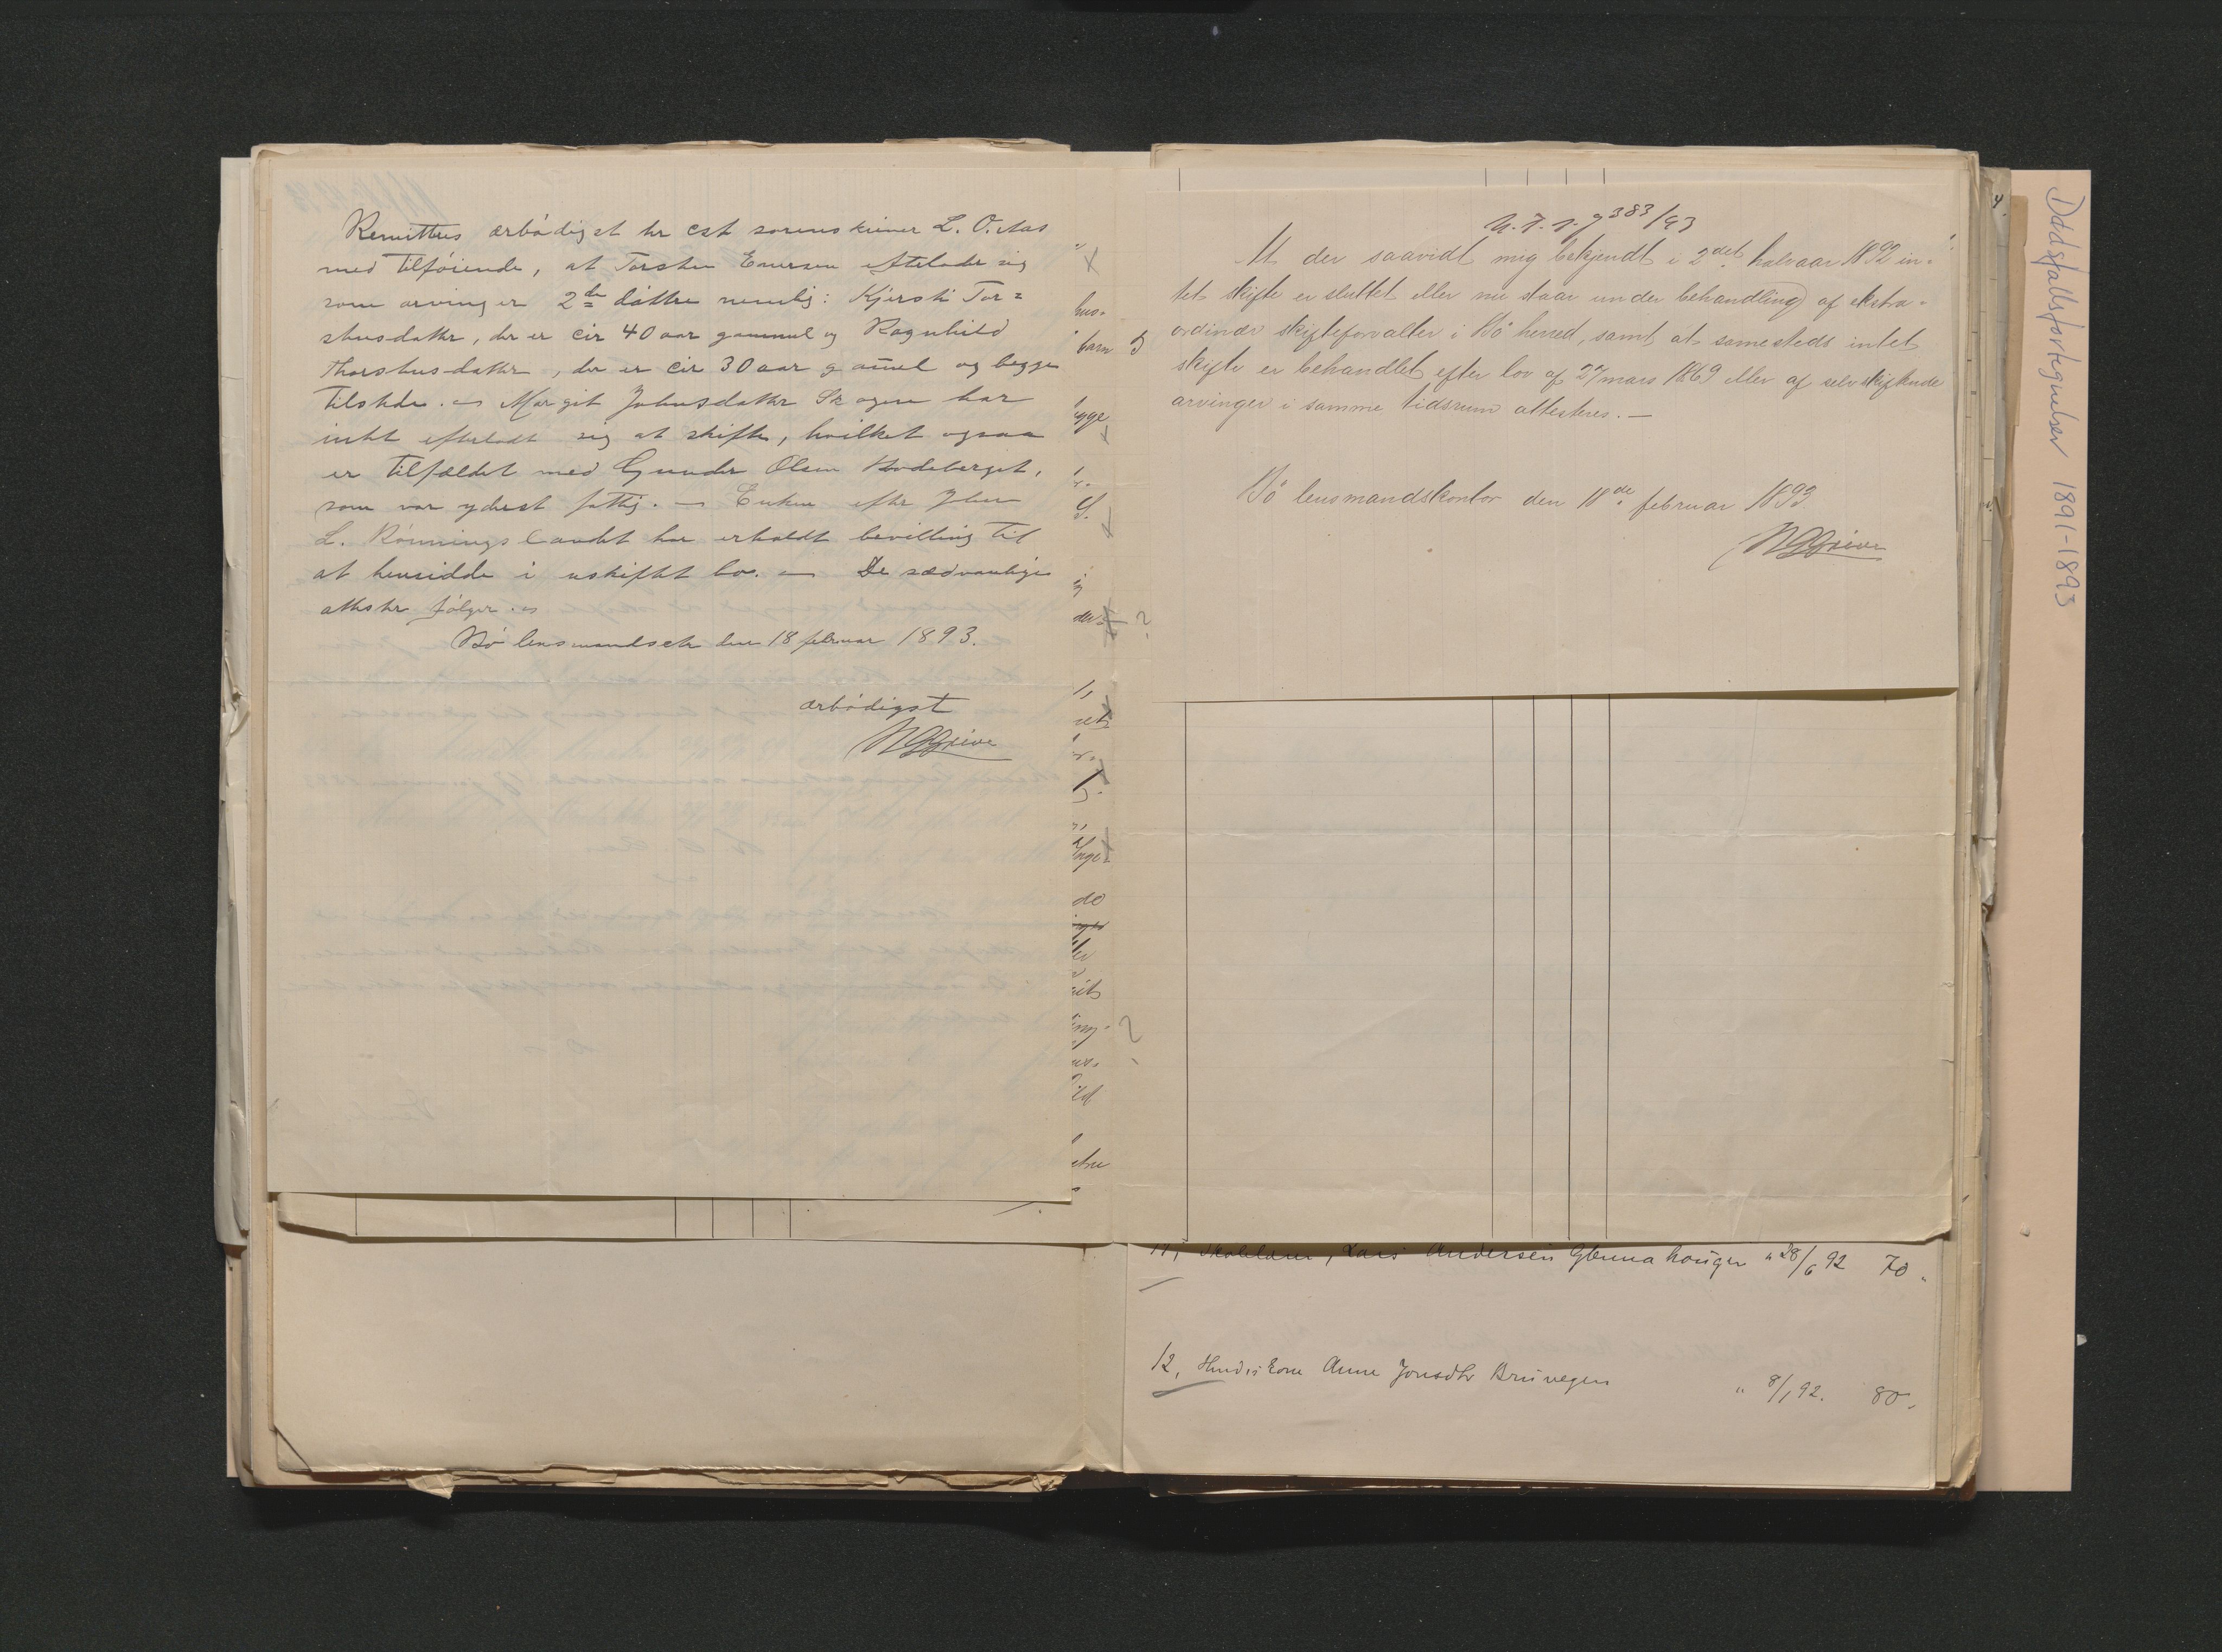 Remitteres ærbödigst hr cst sorenskriver L. O. Aas
med tilföiende, at Torsten Enersen efterlader sig
som arvinger 2de döttre nemlig: Kjersti Tor=
stensdatter, der er cir 40 aar gammel og Ragnhild
Thorstensdatter, der er cir 30 aar gam̄el og begge
tilstede. — Margit Johnsdatter Skogen har
intet efterladt sig at skifte, hvilket ogsaa
er tilfældet med Gunder Olsen
som var yderst fattig. — Enken efter John
L. Rönningslandet har erholdt bevilling til
at hensidde i uskiftet bo. — De sædvanlige
attester følger. —
Bö lensmandsctr den 18 februar 1893.
ærbödigst
NGGreve
hus-
barn
ygge
S.
der
set
Inge-
do
ler
rits
ild
383/93
At der saavidt mig bekjendt i 2det halvaar 1892 in-
tet skifte er sluttet eller nu staar under behandling af ekstra-
ordinær skifteforvalter i Bö herred, samt at samesteds intet
skifte er behandlet efter lov af 27 mars 1869 eller af selvskiftende
arvinger i samme tidsrum attesteres. —
Bö lensmandskontor den 18de februar 1893
NGGreve
11, Skolelærer, Lars Andersen Glennahougen " 28/6 92 70 "
12, Anne Jonsdtr Brúvegen " 8/1 92. 80 "
Dødsfallsfortegnelser 1891-1893
4.